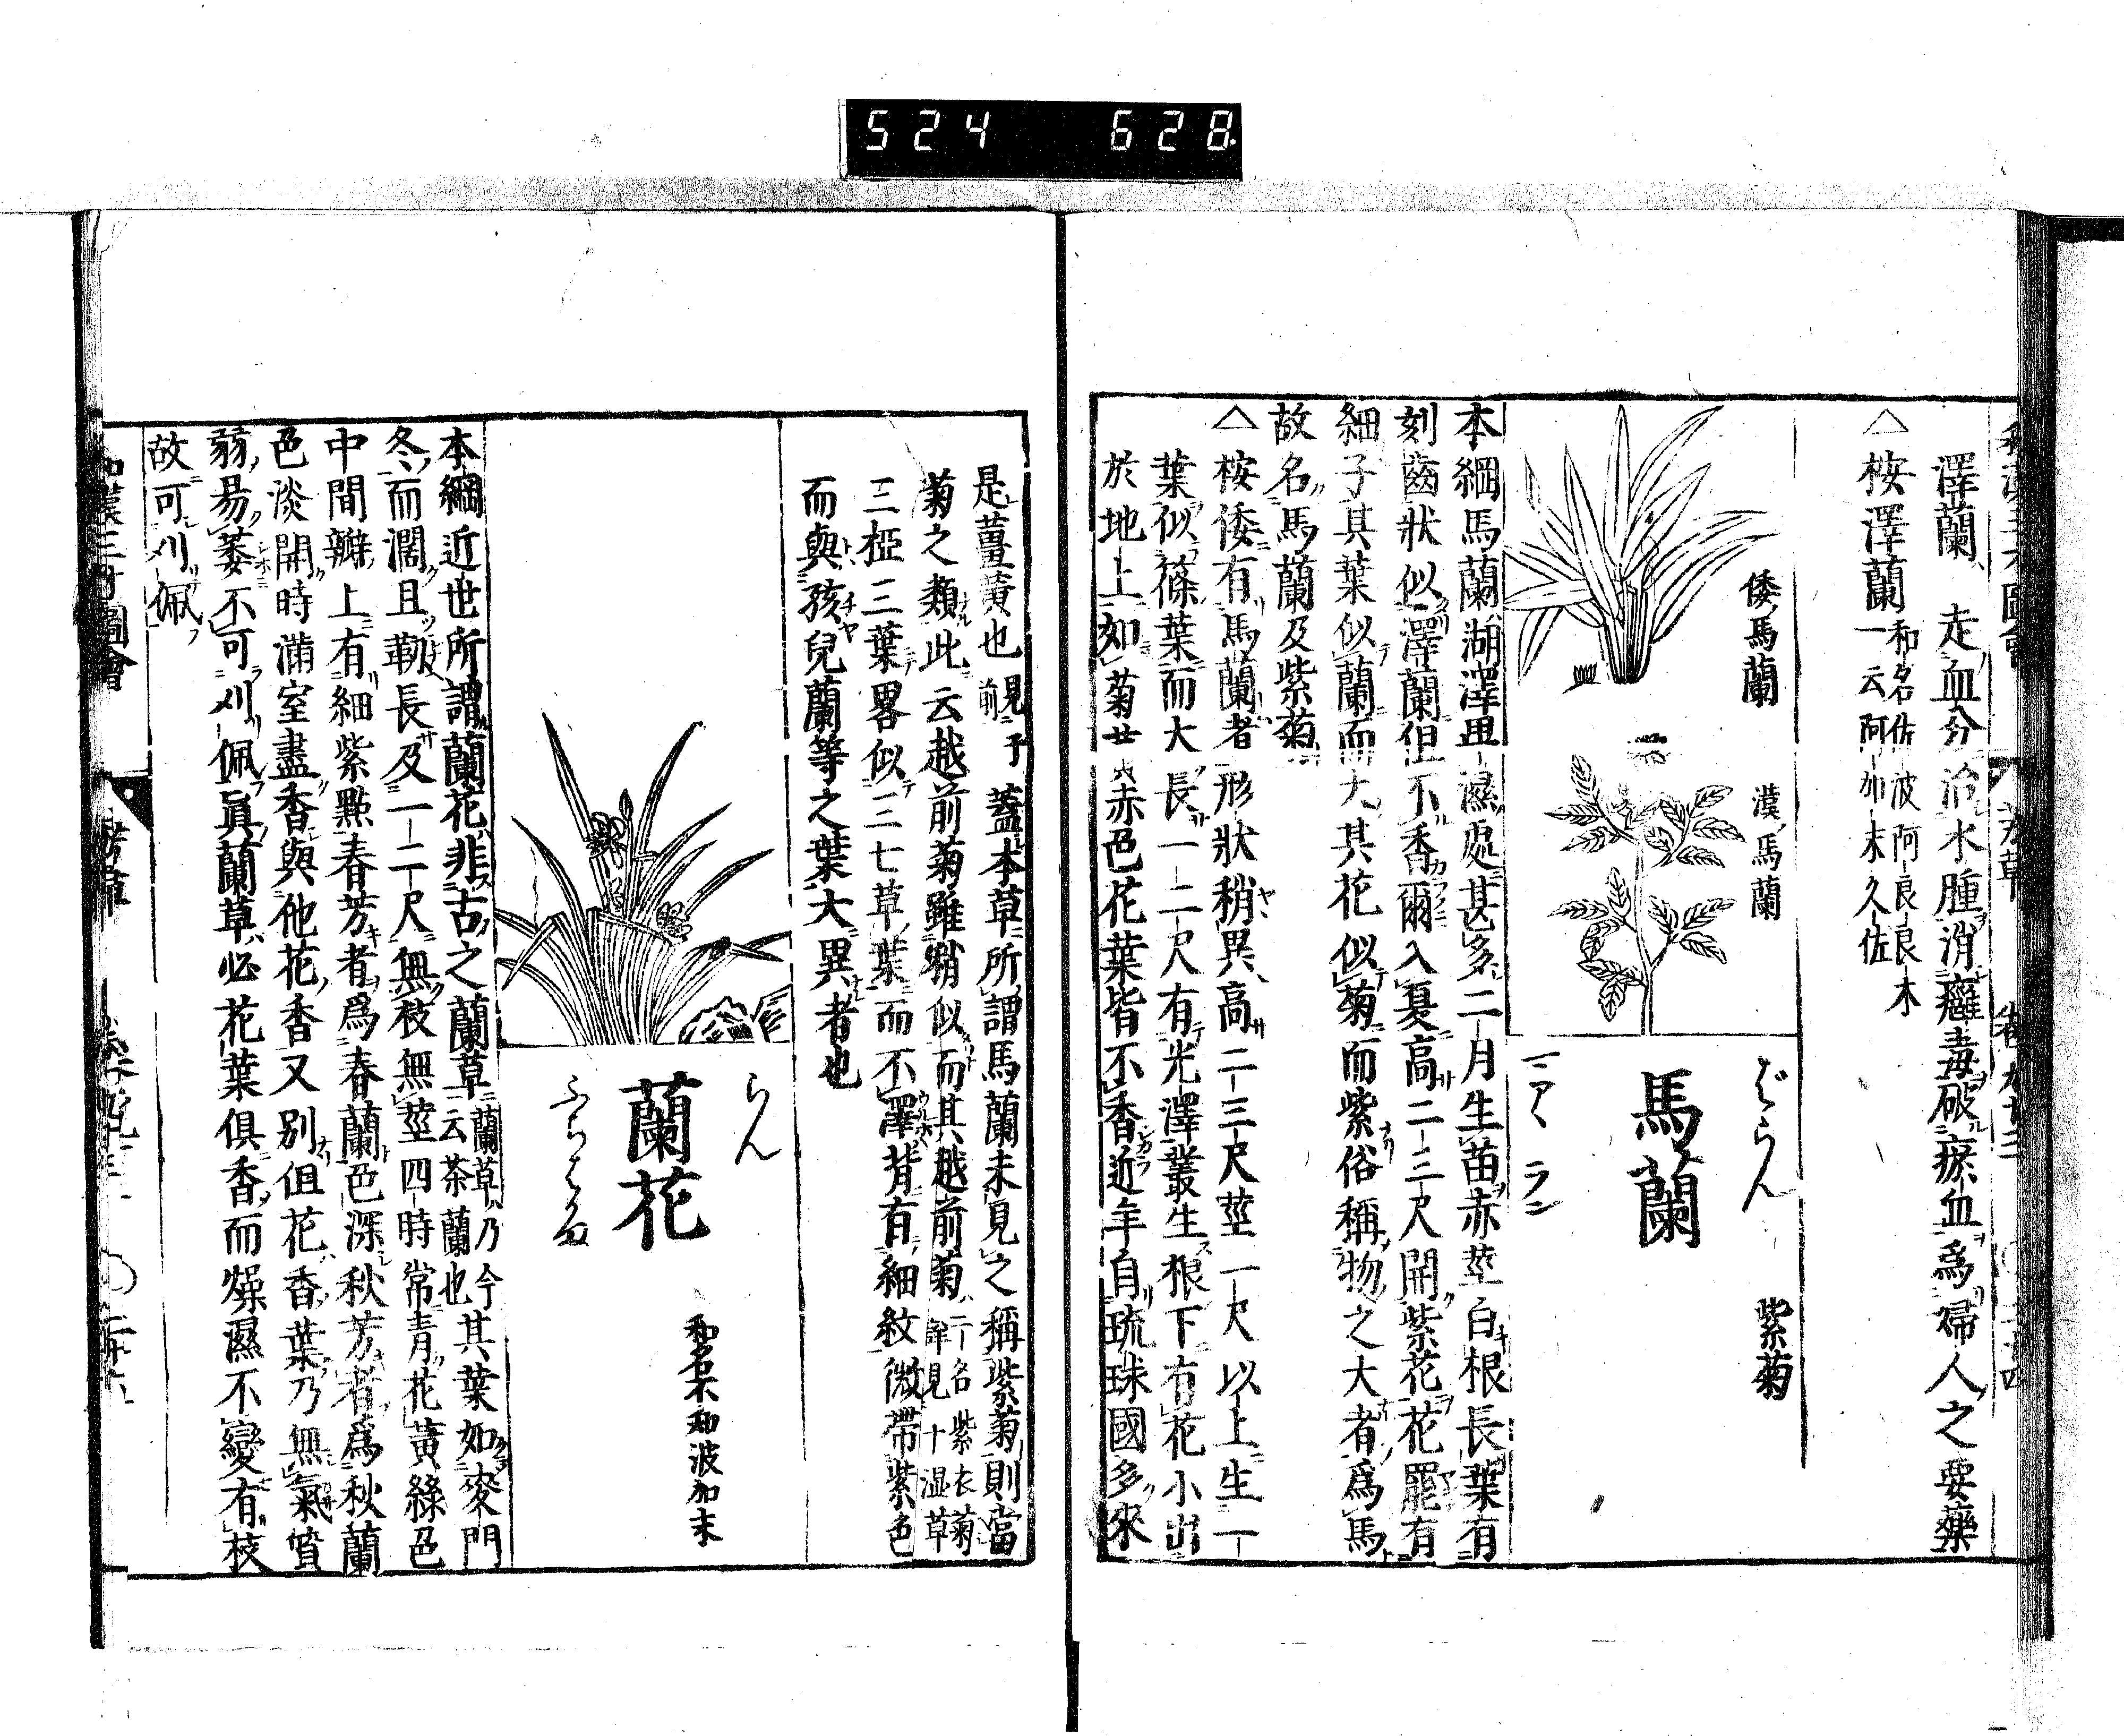 524 628
澤蘭 走血分治水腫消癰毒破瘀血爲婦人之要藥
△按澤蘭 和名佐波阿良良木
一云阿加末久佐
倭馬蘭
漢馬蘭
ばらん
馬蘭
紫菊
本綱馬蘭湖澤卑濕處甚多二月生苗赤莖白根長葉有
刻齒狀似澤蘭但不香爾入夏高二三尺開紫花花罷有
細子其葉似蘭而大其花似菊而紫俗稱物之大者爲馬
故名馬蘭及紫菊
△按倭有馬蘭者形狀稍異高二三尺莖一尺以上生一
葉似篠葉而大長一二尺有光澤叢生根下有花小出
於地上如菊 赤色花葉皆不香近年自琉球國多來
是薑黃也見于前 蓋本草所謂馬蘭未見之稱紫菊則當
菊之類此云越前菊雖稍似而其越前菊 一名紫衣菊
詳見十湿草
三椏三葉畧似三七草葉而不澤背有細紋微帶紫色
而與孩兒蘭等之葉大異者也
らん
蘭花
ふぢばかま
和名不知波加末
本綱近世所謂蘭花非古之蘭草 蘭草乃今
云茶蘭也 其葉如麥門
冬而濶且靱長及一二尺無枝無莖四時常青花黃綠色
中間瓣上有細紫點春芳者爲春蘭色深秋芳者爲秋蘭
色淡開時滿室盡香與他花香又別但花香葉乃無氣質
弱易萎不可刈佩眞蘭草必花葉俱香而燥濕不變有枝
故可刈佩